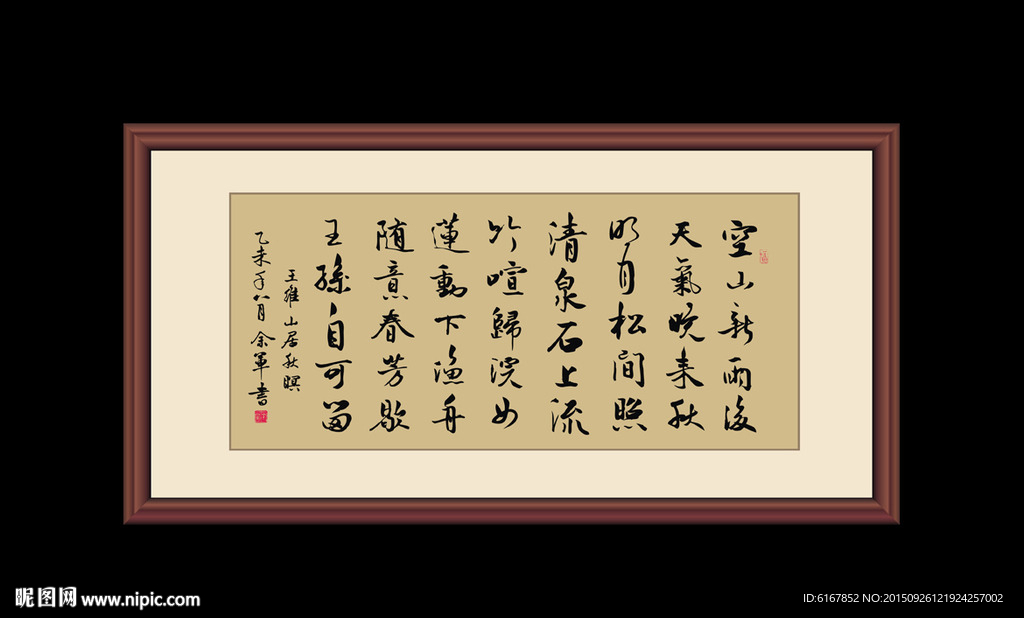 空山新雨後
天氣晚来秋
明月松間照
清泉石上流
竹喧歸浣女
蓮動下漁舟
随意春芳歇
王孫自可留
王維山居秋暝
乙未年八月余軍書
昵图网 www.nipic.com
ID:6167852 NO:20150926121924257002